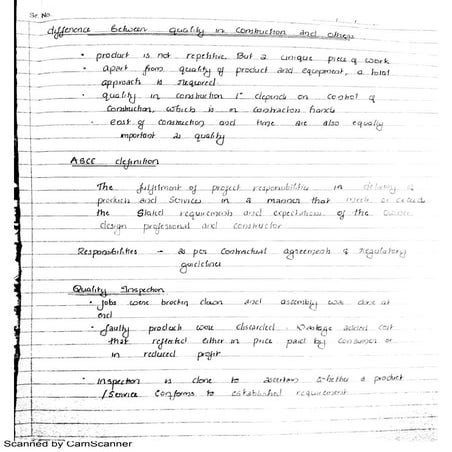 Sr. No.
difference between quality in construction and others
• product is not repetitive. But a unique piece of work
• apart from quality of product and equipment, a total
approach is required
• quality in construction is depends on control of
construction, which is in contraction hands
• cost of construction and time are also equally
important as quality
ASCE definition
The fulfilment of project responsibilities in delivery of
products and services in a manner that meets or exceeds
the stated requirements and expectations of the owner
design professional and constructor
Responsibilities - as per contractual agreements & regulatory
guidelines
Quality Inspection
• Jobs were broken down and assembly was done at
end
• faulty product were discarded. Wastage added cost
that reflected either in price paid by consumer or
in reduced profit
• inspection is done to ascertain whether a product
/service conforms to established requirement
Scanned by CamScanner